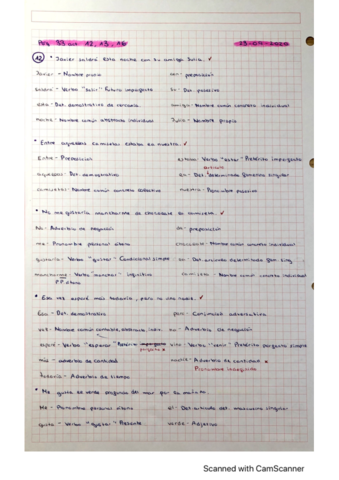 Pág 33 ej. 12, 13, 16
12 • Javier saldrá esta noche con su amiga Julia. ✓
Javier - Nombre propio con - preposición
saldrá - Verbo "salir" Futuro imperfecto su - Det. posesivo
esta - Det. demostrativo de cercanía amiga - Nombre común concreto individual
noche - Nombre común abstracto individual Julia - Nombre propio
• Entre aquellas camisetas estaba la nuestra. ✓
Entre - Preposición estaba - Verbo "estar" Pretérito imperfecto
aquellas - Det. demostrativo la - Det. determinado femenino singular
camisetas - Nombre común concreto nuestra - Pronombre posesivo
• No me gustaría mancharme de chocolate la camiseta. ✓
No - Adverbio de negación de - preposición
me - Pronombre personal átono chocolate - Nombre común concreto individual
gustaría - Verbo "gustar" Condicional simple la - Det. artículo determinado fem. sing.
mancharme - Verbo "manchar" Infinitivo camiseta - Nombre común concreto individual
P.P. átono
• Esa vez esperé más todavía, pero no vino nadie. ✓
Esa - Det. demostrativo pero - Conjunción adversativa
vez - Nombre común contable, abstracto, indiv. no - Adverbio de negación
esperé - Verbo "esperar" Pretérito imperfecto vino - Verbo "venir" Pretérito perfecto simple
más - adverbio de cantidad nadie - Adverbio de cantidad
Pronombre indefinido
todavía - Adverbio de tiempo
• Me gusta el verde profundo del mar por la mañana.
Me - Pronombre personal átono el - Det. artículo det. masculino singular
gusta - Verbo "gustar" Presente verde - Adjetivo
Scanned with CamScanner